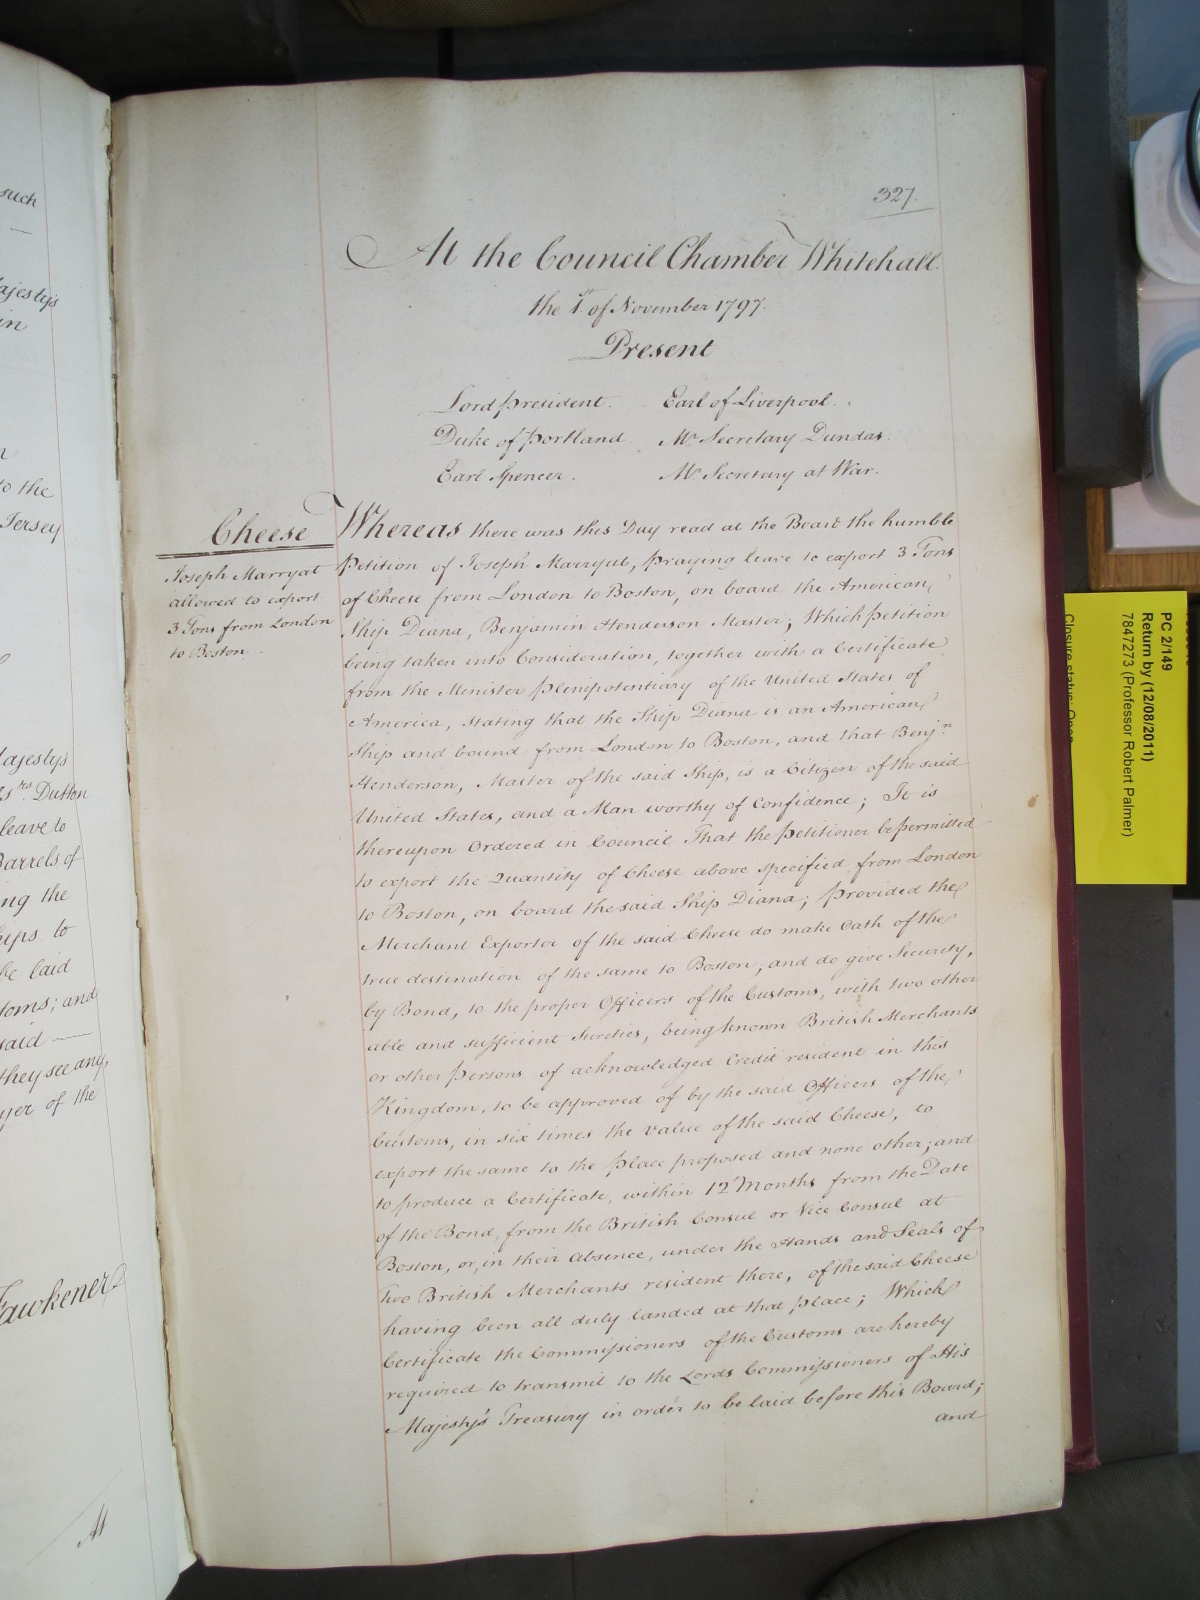 such
ajesty's
in
to the
Jersey
ajesty's
rs. Dutton
leave to
Barrels of
ing the
hips to
be laid
toms; and
said —
they see any,
yer of the
Fawkener
At
327.
At the Council Chamber Whitehall.
the 1st of November 1797.
Present
Lord President. Earl of Liverpool.
Duke of Portland. Mr. Secretary Dundas.
Earl Spencer. Mr. Secretary at War.
Cheese
Joseph Marryat
allowed to export
3 Tons from London
to Boston.
Whereas there was this Day read at the Board the humble
Petition of Joseph Marryat, praying leave to export 3 Tons
of Cheese from London to Boston, on board the American
Ship Diana, Benjamin Henderson Master; Which Petition
being taken into Consideration, together with a Certificate
from the Minister Plenipotentiary of the United States of
America, stating that the Ship Diana is an American
Ship and bound from London to Boston, and that Benjn.
Henderson, Master of the said Ship, is a Citizen of the said
United States, and a Man worthy of Confidence; It is
thereupon Ordered in Council That the Petitioner be permitted
to export the Quantity of Cheese above specified from London
to Boston, on board the said Ship Diana; provided the
Merchant Exporter of the said Cheese do make Oath of the
true destination of the same to Boston, and do give Security,
by Bond, to the proper Officers of the Customs, with two other
able and sufficient Sureties, being known British Merchants
or other Persons of acknowledged Credit resident in this
Kingdom, to be approved of by the said Officers of the
Customs, in six times the value of the said Cheese, to
export the same to the Place proposed and none other; and
to produce a Certificate, within 12 Months from the Date
of the Bond, from the British Consul or Vice Consul at
Boston, or, in their Absence, under the Hands and Seals of
two British Merchants resident there, of the said Cheese
having been all duly landed at that place; Which
Certificate the Commissioners of the Customs are hereby
required to transmit to the Lords Commissioners of His
Majesty's Treasury in order to be laid before this Board;
and
PC 2/149
Return by (12/08/2011)
7847273 (Professor Robert Palmer)
Closure status: Open